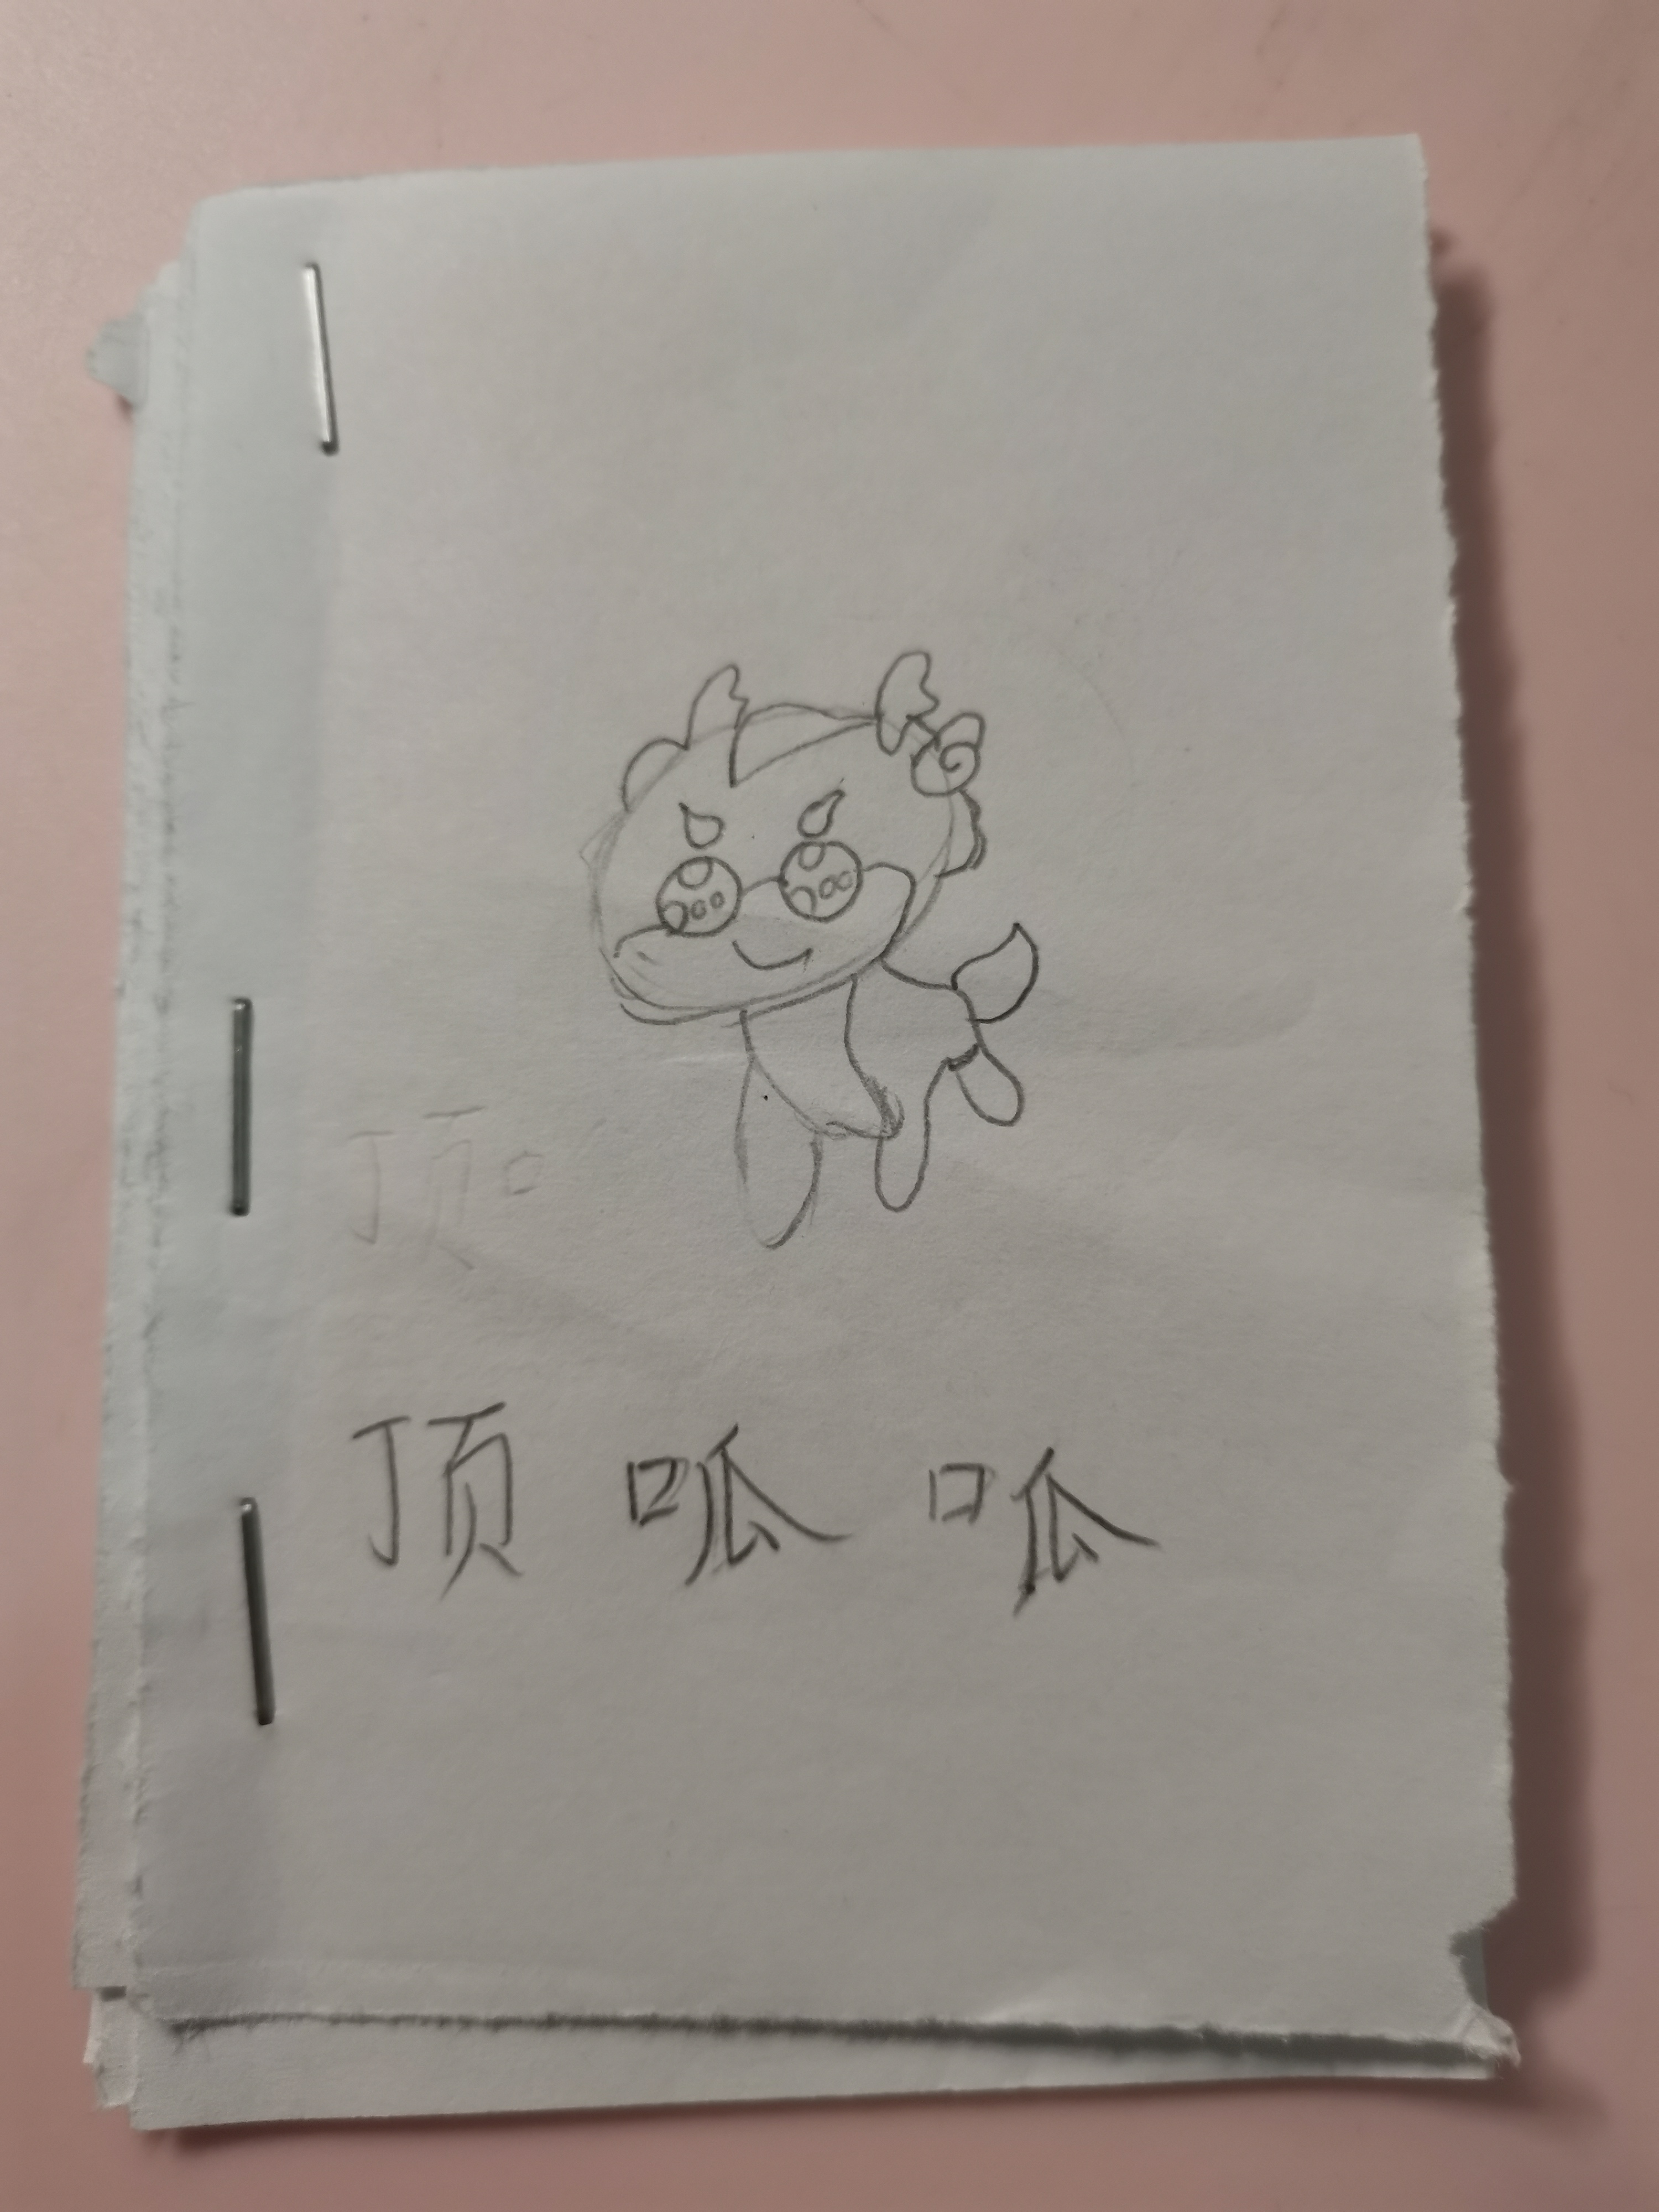 顶口
顶呱呱